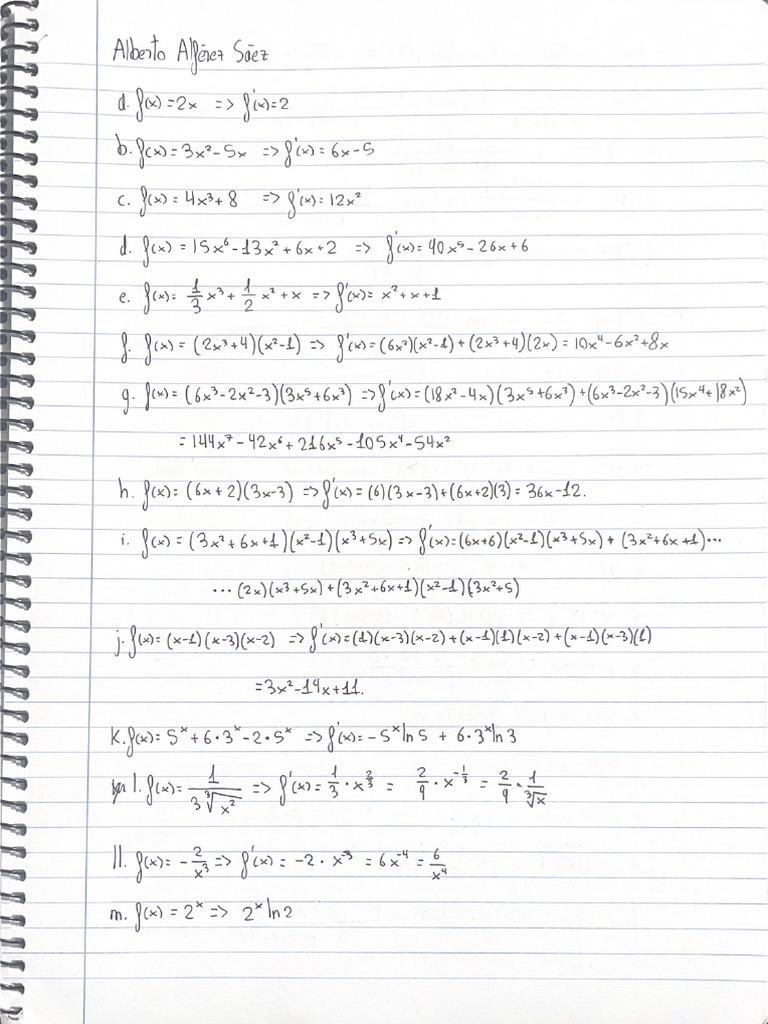 Alberto Alférez Sáez
d. f(x) = 2x => f'(x) = 2
b. f(x) = 3x² - 5x => f'(x) = 6x - 5
c. f(x) = 4x³ + 8 => f'(x) = 12x²
d. f(x) = 15x⁶ - 13x² + 6x + 2 => f'(x) = 40x⁵ - 26x + 6
e. f(x) = 1/3 x³ + 1/2 x² + x => f'(x) = x² + x + 1
f. f(x) = (2x³+4)(x²-1) => f'(x) = (6x²)(x²-1) + (2x³+4)(2x) = 10x⁴ - 6x² + 8x
g. f(x) = (6x³-2x²-3)(3x⁵+6x³) => f'(x) = (18x²-4x)(3x⁵+6x³) + (6x³-2x²-3)(15x⁴+18x²)
= 144x⁷ - 42x⁶ + 216x⁵ - 105x⁴ - 54x²
h. f(x) = (6x+2)(3x-3) => f'(x) = (6)(3x-3) + (6x+2)(3) = 36x - 12.
i. f(x) = (3x²+6x+1)(x²-1)(x³+5x) => f'(x) = (6x+6)(x²-1)(x³+5x) + (3x²+6x+1)...
... (2x)(x³+5x) + (3x²+6x+1)(x²-1)(3x²+5)
j. f(x) = (x-1)(x-3)(x-2) => f'(x) = (1)(x-3)(x-2) + (x-1)(1)(x-2) + (x-1)(x-3)(1)
= 3x² - 14x + 11.
K. f(x) = 5ˣ + 6·3ˣ - 2·5ˣ => f'(x) = -5ˣ ln 5 + 6·3ˣ ln 3
l. f(x) = 1/(3∛x²) => f'(x) = 1/3 · x^(2/3) = 2/9 · x^(-1/3) = 2/9 · 1/∛x
ll. f(x) = -2/x³ => f'(x) = -2 · x⁻³ = 6x⁻⁴ = 6/x⁴
m. f(x) = 2ˣ => 2ˣ ln 2